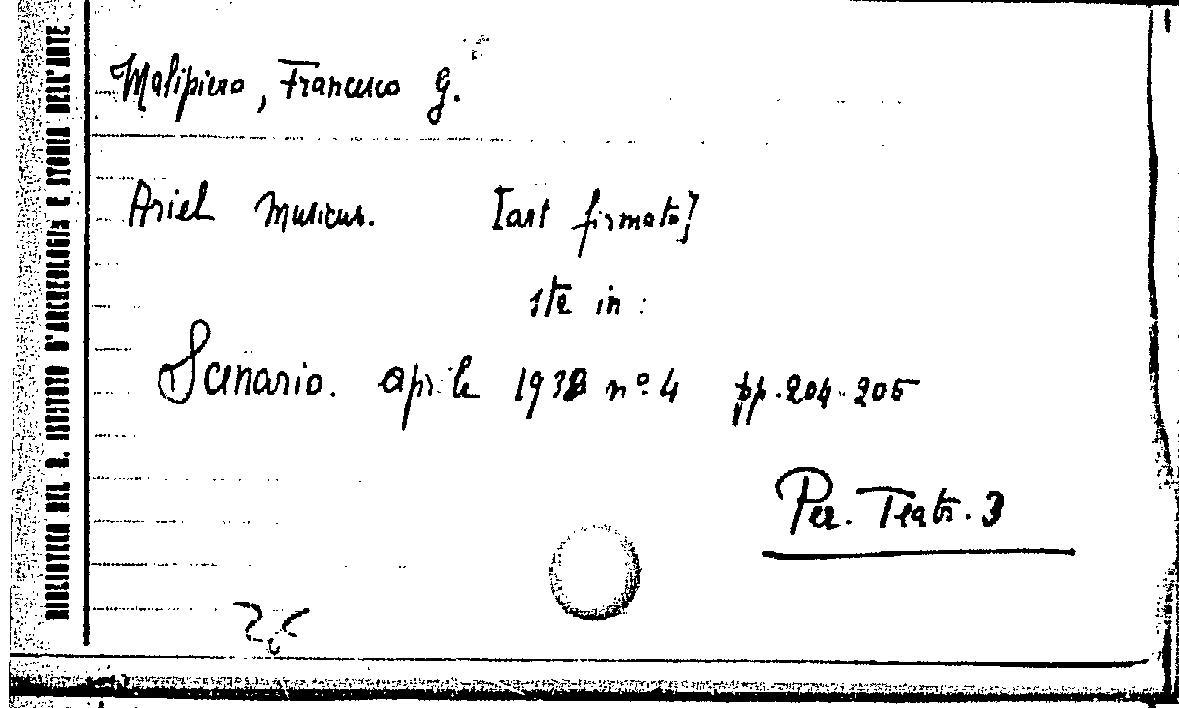 BIBLIOTECA DEL R. ISTITUTO D'ARCHEOLOGIA E STORIA DELL'ARTE
Malipiero, Francesco G.
Ariel musicus. [art firmato]
sta in:
Scenario. aprile 1938 nº 4 pp. 204-205
Per. Teatr. 3